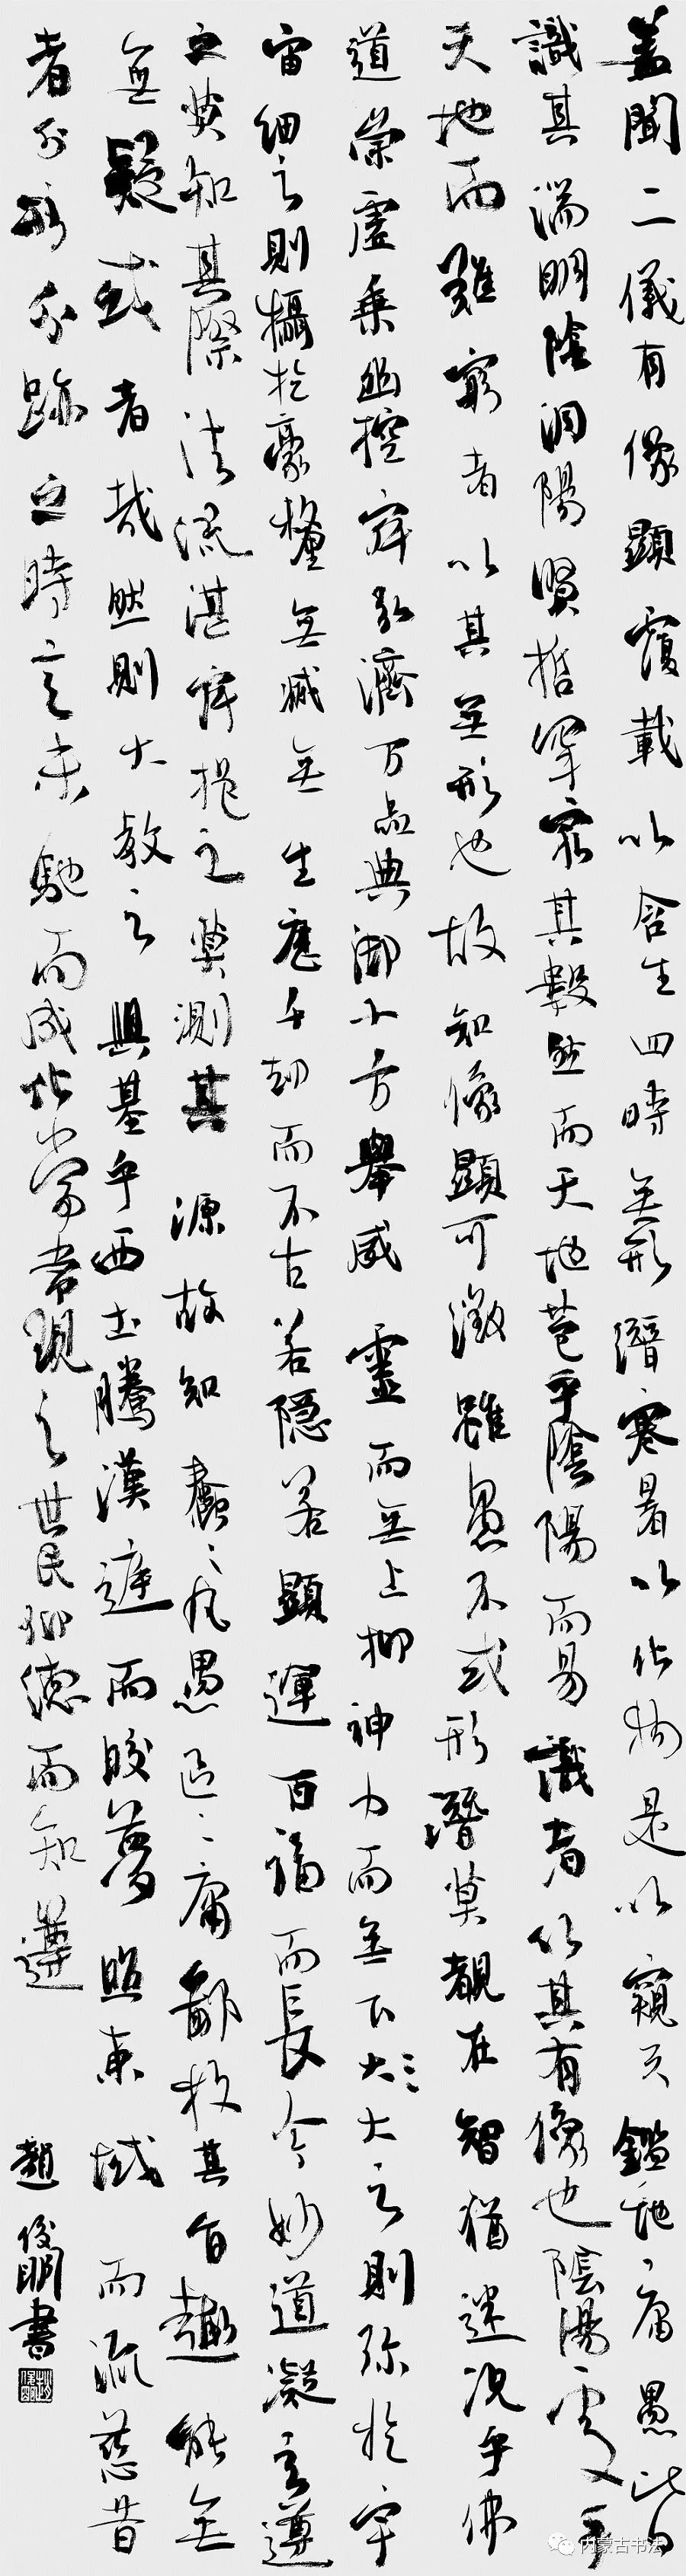 蓋聞二儀有像顯覆載以含生四時無形潛寒暑以化物是以窺天鑑地庸愚皆
識其端明陰洞陽賢哲罕窮其數然而天地苞乎陰陽而易識者以其有像也陰陽處乎
天地而難窮者以其無形也故知像顯可徵雖愚不或形潛莫覩在智猶迷況乎佛
道崇虛乘幽控寂弘濟万品典御十方舉威靈而無上抑神力而無下大大之則弥於宇
宙細之則攝於豪釐無滅無生應千劫而不古若隱若顯運百福而長今妙道凝玄遵
之莫知其際法流湛寂挹之莫測其源故知蠢〻凡愚區〻庸鄙投其旨趣能無
無疑或者哉然則大教之興基乎西土騰漢庭而皎夢照東域而流慈昔
者分形分跡之時言未馳而成化當常現之世民仰德而知遵
趙俊明書
内蒙古书法